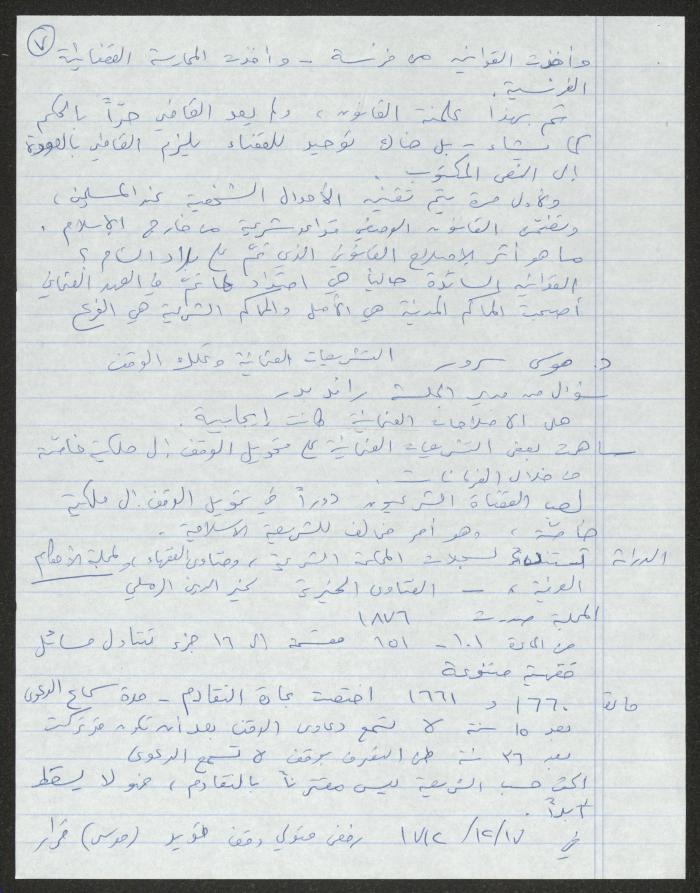 ٧
وأخذت القوانين من فرنسة – وأخذت الممارسة القضائية
الفرنسية.
تم بهذا علمنة القانون، ولم يعد القاضي حرّاً بالحكم
كما يشاء – بل هناك توحيد للقضاء يلزم القاضي بالعودة
إلى النص المكتوب.
ولأول مرة يتم تقنين الأحوال الشخصية عند المسلمين،
وتضمن القانون الوضعي قواعد شرعية من خارج الإسلام.
ما هو أثر الإصلاح القانوني الذي تمّ على بلاد الشام؟
القوانين السائدة حالياً هي امتداد لما تمّ في العهد العثماني
أصبحت المحاكم المدنية هي الأصل والمحاكم الشرعية هي الفرع
د. موسى سرور التشريعات العثمانية وتملك الوقف
سؤال من مدير الجلسة رائد بدر
هل الاصلاحات العثمانية كانت إيجابية.
ساهمت بعض التشريعات العثمانية على تحويل الوقف إلى ملكية خاصة
من خلال الفرمانات.
لعب القضاة الشرعيون دوراً في تحويل الوقف إلى ملكية
خاصة، وهو أمر مخالف للشريعة الاسلامية.
الدراسة تستند لسجلات المحاكمة الشرعية، وفتاوى الفقهاء، ومجلة الأحكام
العدلية، – الفتاوى الخيرية لخير الدين الرملي
المجلة صدرت ١٨٧٦
من المادة ١٠١ – ١٥١ مقسمة إلى ١٦ جزء تتناول مسائل
فقهية متنوعة
مادة ١٦٦٠ و ١٦٦١ اختصت بمادة التقادم – مدة سماع الدعوى
بعد ١٥ سنة لا تسمع دعاوى الوقف بعد أن تكون قد تركت
بعد ٣٦ سنة من التصرف بوقف لا تسمع الدعوى
الحق حسب الشريعة ليس مقترناً بالتقادم، فهو لا يسقط
أبداً.
في ١٧/١٢/١٧١٢ رفض متولي وقف (موسى) قرار